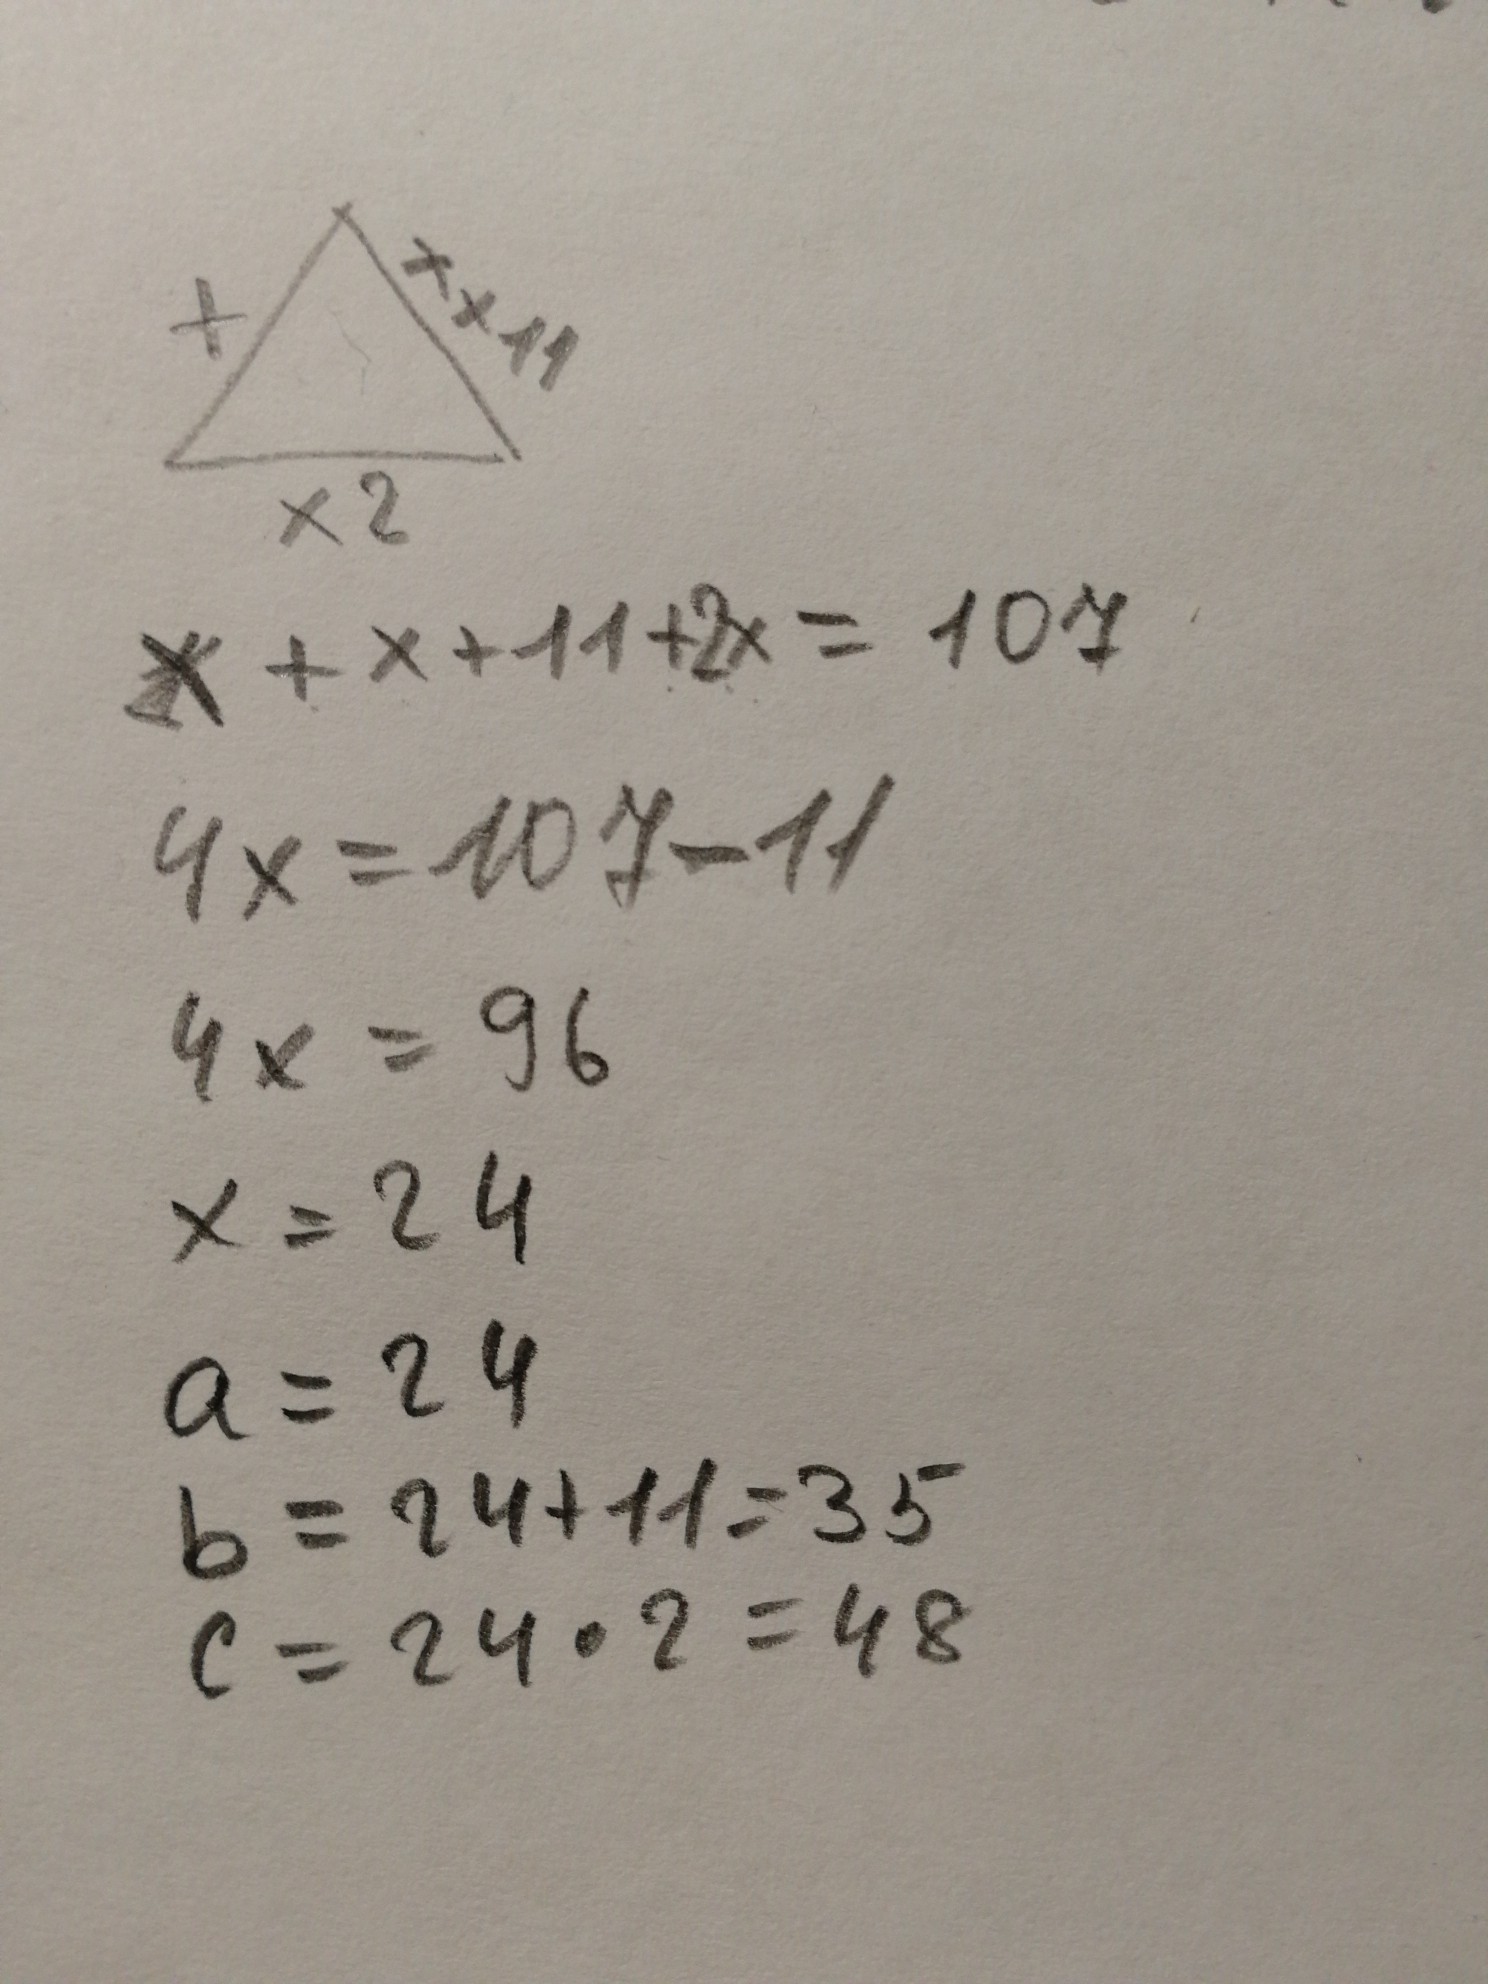 x
x x 11
x 2
x + x + 11 + 2x = 107
4x = 107 - 11
4x = 96
x = 24
a = 24
b = 24 + 11 = 35
c = 24 · 2 = 48